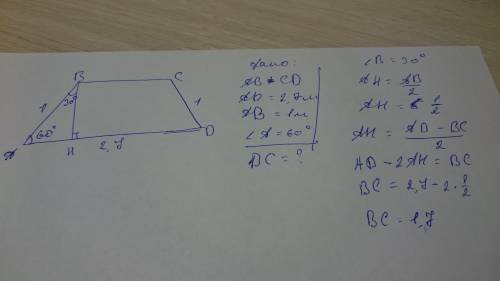 B
C
1
30°
1
60°
A
H
2,7
D
Дано:
AB = CD
AD = 2,7м
AB = 1м
∠A = 60°
BC = ?
∠B = 30°
AH = AB/2
AH = 1/2
AH = AD - BC/2
AD - 2AH = BC
BC = 2,7 - 2 · 1/2
BC = 1,7